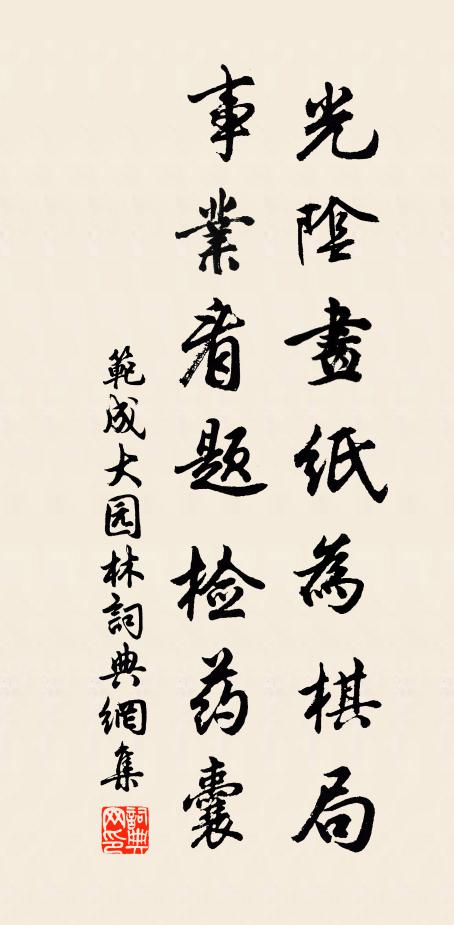 光陰畫紙為棋局
事業看題检药囊
範成大园林詞典網集
詞典网印